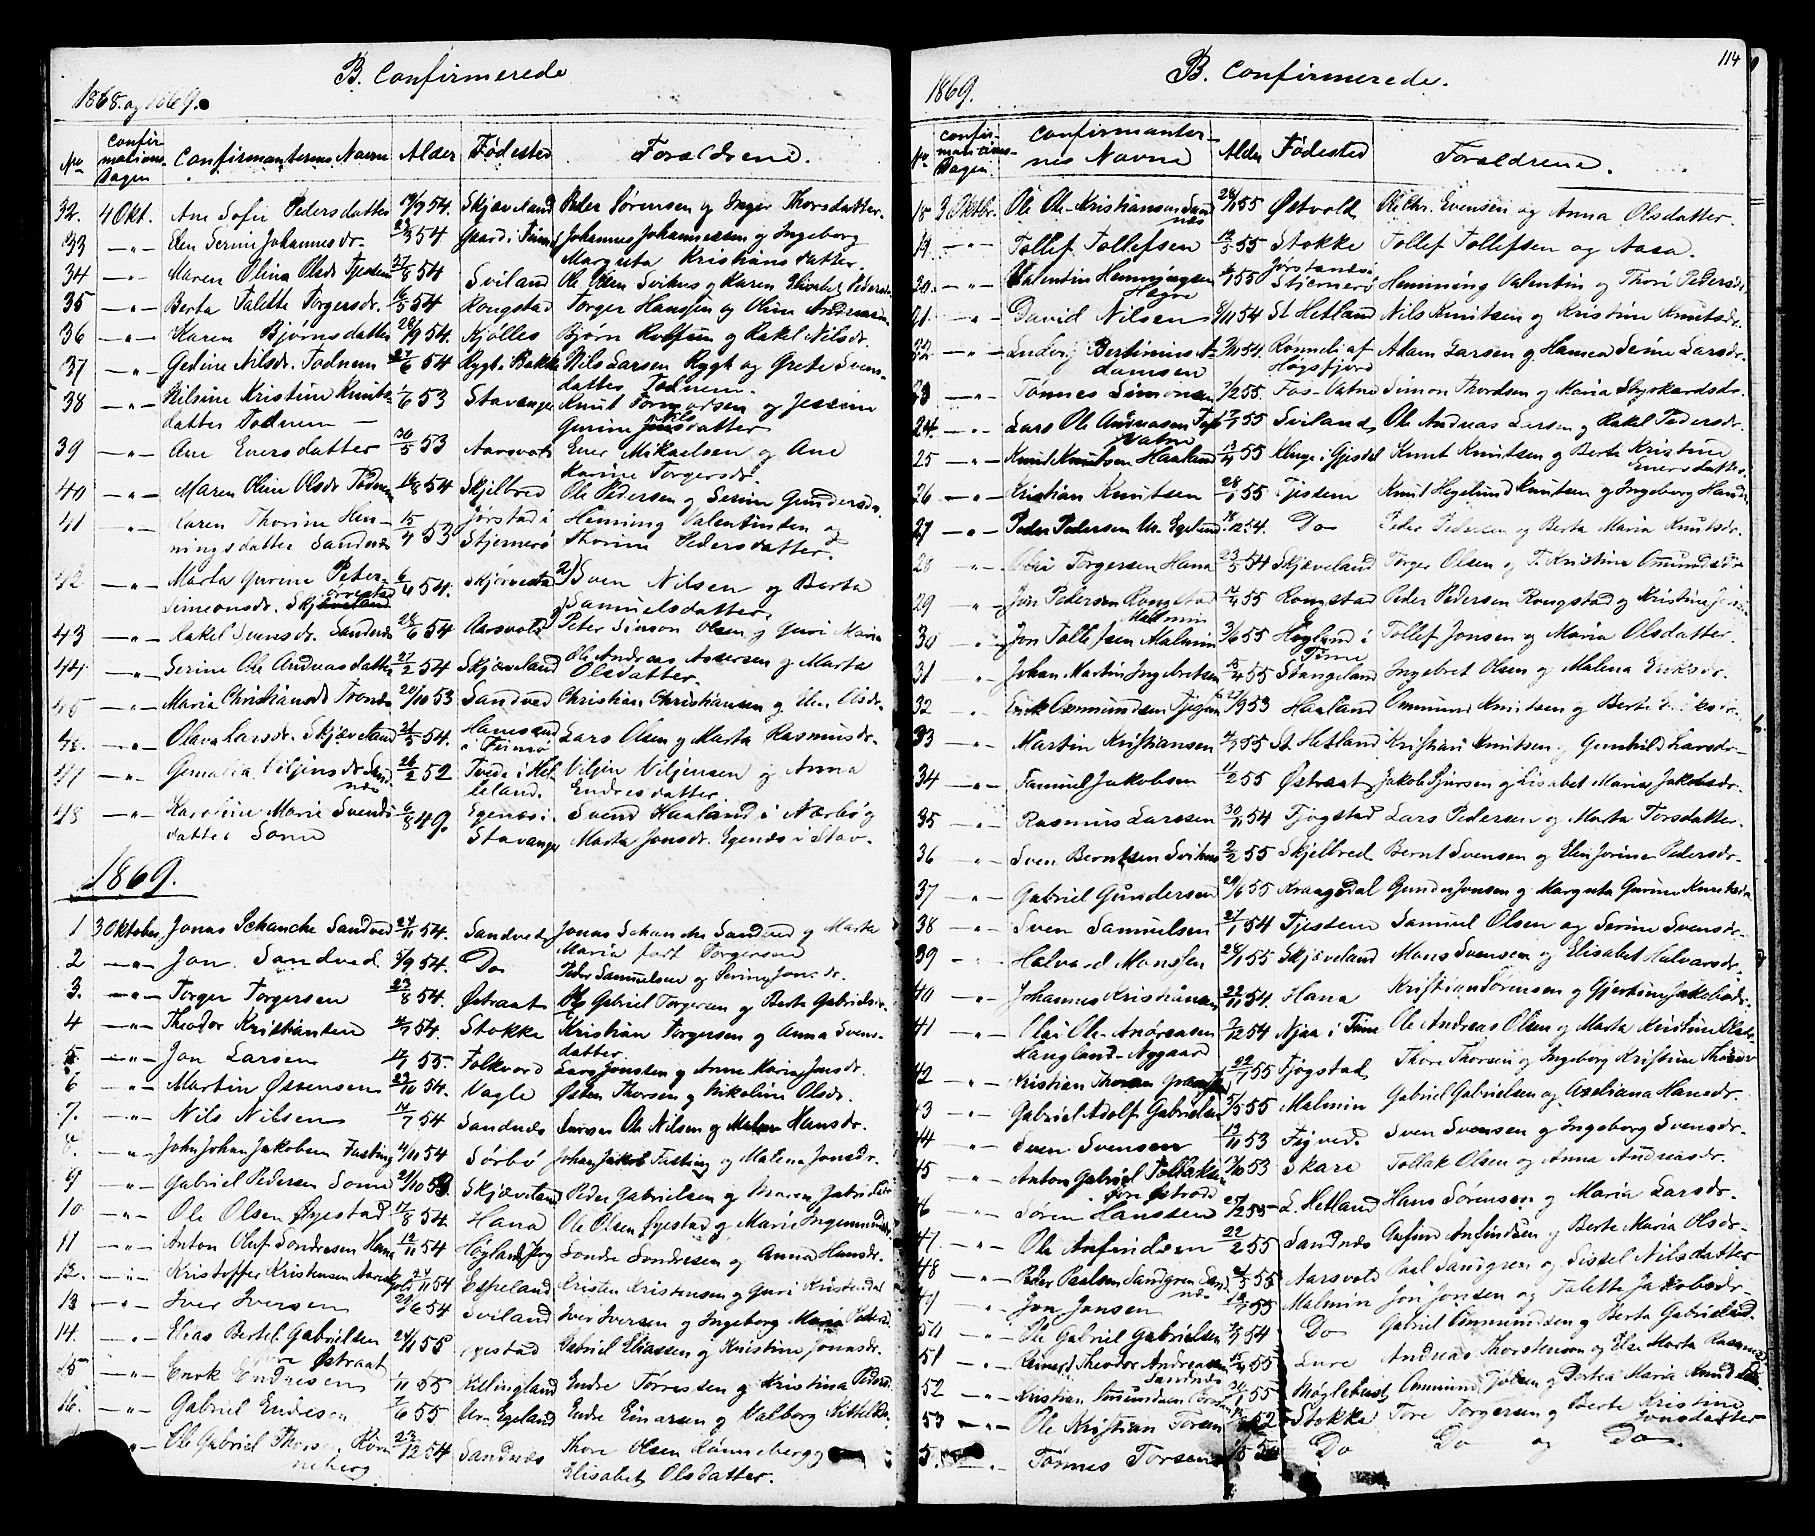 B. Confirmerede
1868. og 1869.
No Confirmations Dagen Confirmanternes Navne Alder Fødested Forældrene.
32. 4 Okt. Ane Sofie Pedersdatter 54. Skjævland Peder Sørensen og Inger Thorsdatter.
33 —"— Elen Serine Johannesdr. 54 Johannes Johannessen og Ingeborg
Margreta Kristiansdatter.
34 —"— Maren Olina Olsdr Tjessem 27/8 54 Sviland Ole Olsen Svihus og Karen Pedersdr
35 —"— Berta Talette Torgersdr. 6/5 54 Rongstad Torger Hanssen og Oline
36 —"— Karen Bjørnsdatter 28/9 54. Kjølles Bjørn og Rakel Nilsdr.
37 —"— Gedine Nilsdr. Todnem 27/6 54 Rygh Bakke Nils Larsen Rygh og Grete Svens-
datter Todnem.
38 —"— Nilsine Kristine Knuts- 1/6 53 Stavanger Knut og
datter Todnem — Gurine datter
39 —"— Ane Eversdatter 30/5 53 Aarsvoll Ever Mikaelsen og Ane
Karine Torgersdr.
40 —"— Maren Oline Olsdr Todnem 54 Skjelbred Ole Pedersen og Serine Gundersdr.
41 —"— Karen Thorine Hen- 15/4 53 Jørstad i Henning Valentinsen og
ningsdatter Sandnæs Stjernerø Thorine Pedersdatter.
42 —"— Marta Gurine Peter- 6/4 54. Skjørestad Sven Nilsen og Berta
Simeonsdr. Samuelsdatter.
43 —"— Rakel Svensdr. Sandnæs 28/6 54 Aarsvoll Peter Simon Olsen og Guri Maria
44 —"— Serine Ole Andreasdatter 27/2 54 Skjæveland Ole Andreas Assersen og Marta
Olsdatter.
45 —"— Maria Christiansdr Tronæs 20/10 53 Sandved Christian Christiansen og Elen Olsdr.
46. —"— Olava Larsdr. Skjæveland 54. Lars Olsen og Marta Rasmusdr.
47 —"— Viljensdr. Sand- 26/2 52 Tvede i Hel- Viljen Viljensen og Anna
næs leland. Endresdatter
48 —"— Karoline Marie Svends- 6/8 49. Egenæs i Svend Haaland i Nærbø og
datter Somme Stavanger Marta Jonsdr. Egenæs i Stav.
1869.
1 3 Oktober Jonas Schanche Sandved 27/11 54. Sandved Jonas Schanche Sandved og Marta
Maria født Torgersen
2 —"— Jon Sandved 9 54. Do Peder Samuelsen og Serine Jonsdr.
3. —"— Torger Torgersen 23/8 54. Østraat Ole Gabriel Torgersen og Berta Gabrielsdr.
4 —"— Theodor Kristiansen 54. Stokke Kristian Torgersen og Anna Svens-
datter
5 —"— Jon Larsen 55. Folkvord Lars Jonssen og Anne Maria Jonsdr.
6 —"— Martin Østensen 23/10 54. Vagle Østen Thorsen og Nikoline Olsdr.
7. —"— Nils Nilsen 7 54 Sandnæs Ole Nilsen og Malene Hansdr.
8. —"— John Johan Jakobsen Fasting 11 54 Sørbø Johan Jakob Fasting og Malena Jonsdr.
9 —"— Gabriel Pedersen Somme 21/10 53 Skjæveland Peder Gabrielsen og Maren Gabrielsdr
10. —"— Ole Olsen Øyestad 17/8 54. Hana Ole Olsen Øyestad og Marie Ingemundsdr
11 —"— Anton Oluf Sondresen Hana 12/11 54 Høgland Sondre Sondresen og Anna Hansdr.
12. —"— Kristoffer Kristensen 11 54 Espeland Kristen Kristensen og Guri Kristensdr
13 —"— Iver Iversen 29/6 54 Sviland Iver Iversen og Ingeborg Maria Pedersdr.
14. —"— Elias Bertel Gabrielsen 24/1 55 Gabriel Eliassen og Kristine Jonasdr.
Østraat
15 —"— Enok Endresen 55 Killingland Endre Tørressen og Kristina Pedersdr
16. —"— Gabriel Endresen 6 55 Ur. Egeland Endre Einarsen og Valborg Kittelsdr.
—"— Ole Gabriel Thorsen Rønne- 23/12 54 Sandnæs Thore Olsen Rønneberg og
neberg Elisabet Olsdatter.
B. Confirmerede.
114
1869.
No Confirmations Dagen Confirmanternes Navne Alder Fødested Forældrene.
18 3 Oktbr. Ole Ole Kristiansen Sand- 28/1 55 Østvold Ole Chr. Evensen og Anna Olsdatter.
næs
19 —"— Tollef Tollefsen 12/3 55 Stokke Tollef Tollefsen og Aasa.
20. —"— Valentin Henningsen 55 Jørstad i Henning Valentin og Thori Pedersdr.
Høgre Stjernerø
21. —"— David Nilsen 11 54 St Hetland Nils Knutsen og Kristine Knutsdr.
22 —"— Ludvig Bertinius A- 10 54. Rønneli af Adam Larsen og Hanna Serine Larsdr.
damsen Høgsfjord
23 —"— Tønnes Simonsen 2 55. Fos-Vatne Simon Thordsen og Maria Styrkardsdr.
24. —"— Lars Ole Andreasen Fos 55 Sviland Ole Andreas Larsen og Rakel Pedersdr.
Vatne
25 —"— Knut Knutsen Haaland 13/4 55 Kluge i Gjesdal Knut Knutsen og Berte Kristine
Eversdatter
26 —"— Kristian Knutsen 28/1 55 Tjessem Knut Høgelund Knutsen og Ingeborg Hansdr
27 —"— Peder Pedersen Ur. Egeland 12 54. Do Peder Pedersen og Berta Maria Knutsdr.
28 —"— Torgersen Hana 23/5 54 Skjæveland Torger Olsen og T. Kristine Omundsdr
29 —"— Jon Pedersen Rongstad 4 55 Rongstad Peder Pedersen Rongstad og Kristine
30 —"— Jon Tollefsen Malmin 3/6 55 Høgland i Tollef Jonsen og Maria Olsdatter.
Time
31 —"— Johan Martin Ingebretsen 4 55 Stangeland Ingebret Olsen og Malena Eriksdr.
32 —"— Erik Ommundsen Tjessem 9 53 Haaland Ommund Knutsen og Berte Eriksdr.
33 —"— Martin Kristiansen 55 St. Hetland Kristian Knutsen og Gunhild Larsdr.
34 —"— Samuel Jakobsen 11/2 55 Østraat Jakob Sjursen og Lisabet Maria Jakobsdr.
35 —"— Rasmus Larssen 30/11 54 Tjøgstad Lars Pedersen og Marta Torsdatter.
36 —"— Sven Berntsen Svihus 2/2 55 Skjelbred Bernt Svensen og Elen Jorine Pedersdr.
37 —"— Gabriel Gundersen 29/6 55 Kraagedal Gunder Jonsen og Margreta Gurine Knutsdr
38 —"— Sven Samuelsen 27/1 54 Tjessem Samuel Olsen og Serine Svensdr.
39 —"— Halvard Monssen 28/1 55 Skjæveland Mons Svensen og Elisabet Halvorsdr.
40 —"— Johannes Kristiansen 22/11 54. Hana Kristian Sørensen og Gjertine Jakobsdr.
41 —"— Olai Ole Andreasen 12 54 Njaa i Time Ole Andreas Olsen og Marta Kristine Olsdr.
Haugland-Nygaard
42 —"— Kristian Thorsen 22/7 55 Tjøgstad Thore Thorsen og Ingeborg Kristine Thorsdr
43 —"— Gabriel Adolf Gabrielsen 5 55 Malmin Gabriel Gabrielsen og Axeliana Hansdr.
44 —"— Sven Svensen 13/11 53 Sven Svensen og Ingeborg Svensdr.
45 —"— Anton Gabriel Tollaksen 10 53 Skare Tollak Olsen og Anna Andreasdr.
46 —"— Søren Hanssen 25/2 55 L. Hetland Hans Sørensen og Maria Larsdr.
47. —"— Ole Anfindsen 22/2 55 Sandnæs Anfind Anfindsen og Berte Maria Olsdr.
48 —"— Peder Paalsen Sandgren Sand- 5 55 Aarsvoll Paal Sandgren og Sissel Nilsdatter
næs
49 —"— Jon Jonsen 55 Malmin Jon Jonsen og Talette Jakobsdr.
50 —"— Ole Gabriel Gabrielsen 54 Do Gabriel Ommundsen og Berta Gabrielsdr.
51 —"— Theodor Andreassen 4 55 Lure Andreas Thorstensen og Else Marta Rasmusdr
Sandnæs
52 —"— Kristian Ommundsen 30/1 55 Møglebust Ommund og Bertha Maria Knudsdr.
53 —"— Ole Kristian Torsen 52 Stokke Tore Torgersen og Berte Kristine
Jonsdatter
5. —"— Tønnes Torsen Do Do og Do.